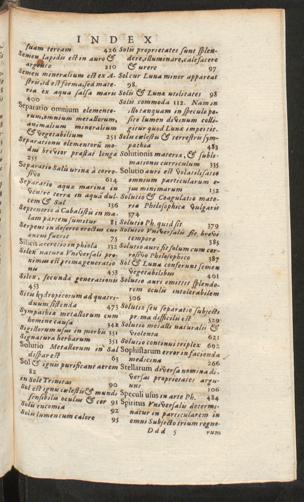 INDEX
suam terram 426
Semen lapidis est in auro &
argento 210
Semen mineralium est ex A-
stris, id est forma, sed mate-
ria ex aqua salsa maris
400
Separatio omnium elemento-
rum, omnium metallorum,
animalium mineralium
& vegetabilium 251
Separationum elementorū mo-
dus brevior prastat longa
255
Separatio Salis urina à corre-
sivo 614
Separatio aqua marina in
ventre terra in aqua dul-
cem & Sal 156
Serpens in deserto erectus cur
aneus fuerit 73
Silicis acetositas in phiola 132
Silex natura Vniversalis pro-
xima est prima generatio-
ni 453
Silex, secunda generationis
453
Situ hydropicorum ad quatri-
duum sistenda 473
Sympathia metallorum cum
homine causa 342
Sigillorum usus in morbis 351
Signatura herbarum 351
Solutio Metallorum in Sal
dispar est 63
Sol & ignis purificant aerem
82
in Sole Trinitas 90
Sol est ignis cœlestis & mundi
sensibilis oculus & cor 91
Solis encomia 92
Solis lumen cum calore 95
Solis proprietates sunt splen-
dere, illuminare, calefacere
& urere 97
Sol cur Luna minor appareat
98.
Solis & Luna utilitates 98
Solis commoda 112. Nam in
isto tanquam in speculo po-
sito lumen divinum colli-
gitur quod Luna impertit.
Solis cœlestis & terrestris sym-
pathia 483
Solutionis materia, & subli-
mationis curriculum 335
Solutio auri est volatilisatio
omnium particularum e-
jus minimarum 152
Solutio & Coagulatio mate-
ria Philosophica Vulgaris
374
Solutio Ph. quid sit 379
Solutio Vniversalis sit brevi
tempore 385
Solutio auri sit solum cum cor-
rosivo Philosophico 387
Sol & Luna conferunt semen
Vegetabilibus 401
Solutio auri emittit splendo-
rem oculis intolerabilem
506
Solutio seu separatio subjecti
pr. ma difficilis est 505
Solutio metalli naturalis &
violenta 621
Solutio communis triplex 602
Sophistarum error in facienda
medicina 266
Stellarum diversa nomina di-
versas proprietates argu-
unt 106
Speculi usus in arte Ph. 484
Spiritus Vniversalis determi-
natur in particularem in
omni Subjecto trium regno-
Ddd 5 rum